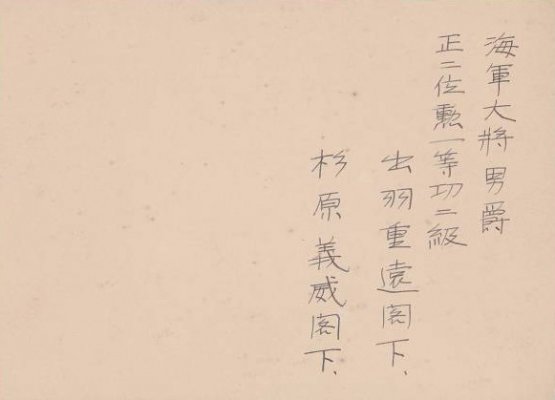 海軍大將男爵
正二位勲一等功二級
出羽重遠閣下、
杉原義威閣下、